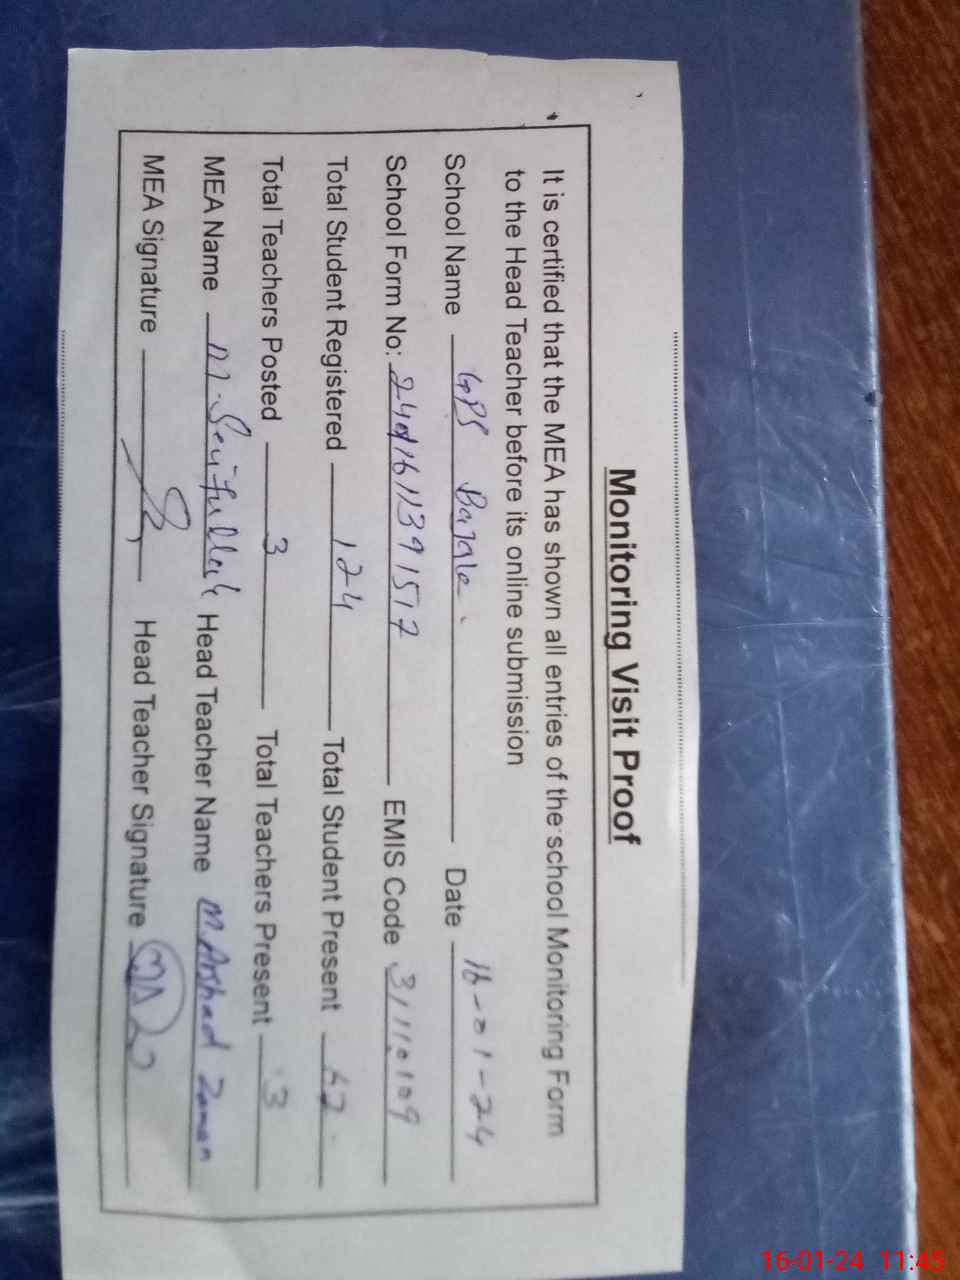 Monitoring Visit Proof
It is certified that the MEA has shown all entries of the school Monitoring Form
to the Head Teacher before its online submission
School Name GPS Date 16-01-24
School Form No: EMIS Code
Total Student Registered 124 Total Student Present 62
Total Teachers Posted 3 Total Teachers Present 3
MEA Name M. Saifullah Head Teacher Name M. Arshad Zaman
MEA Signature Head Teacher Signature
16-01-24 11:45